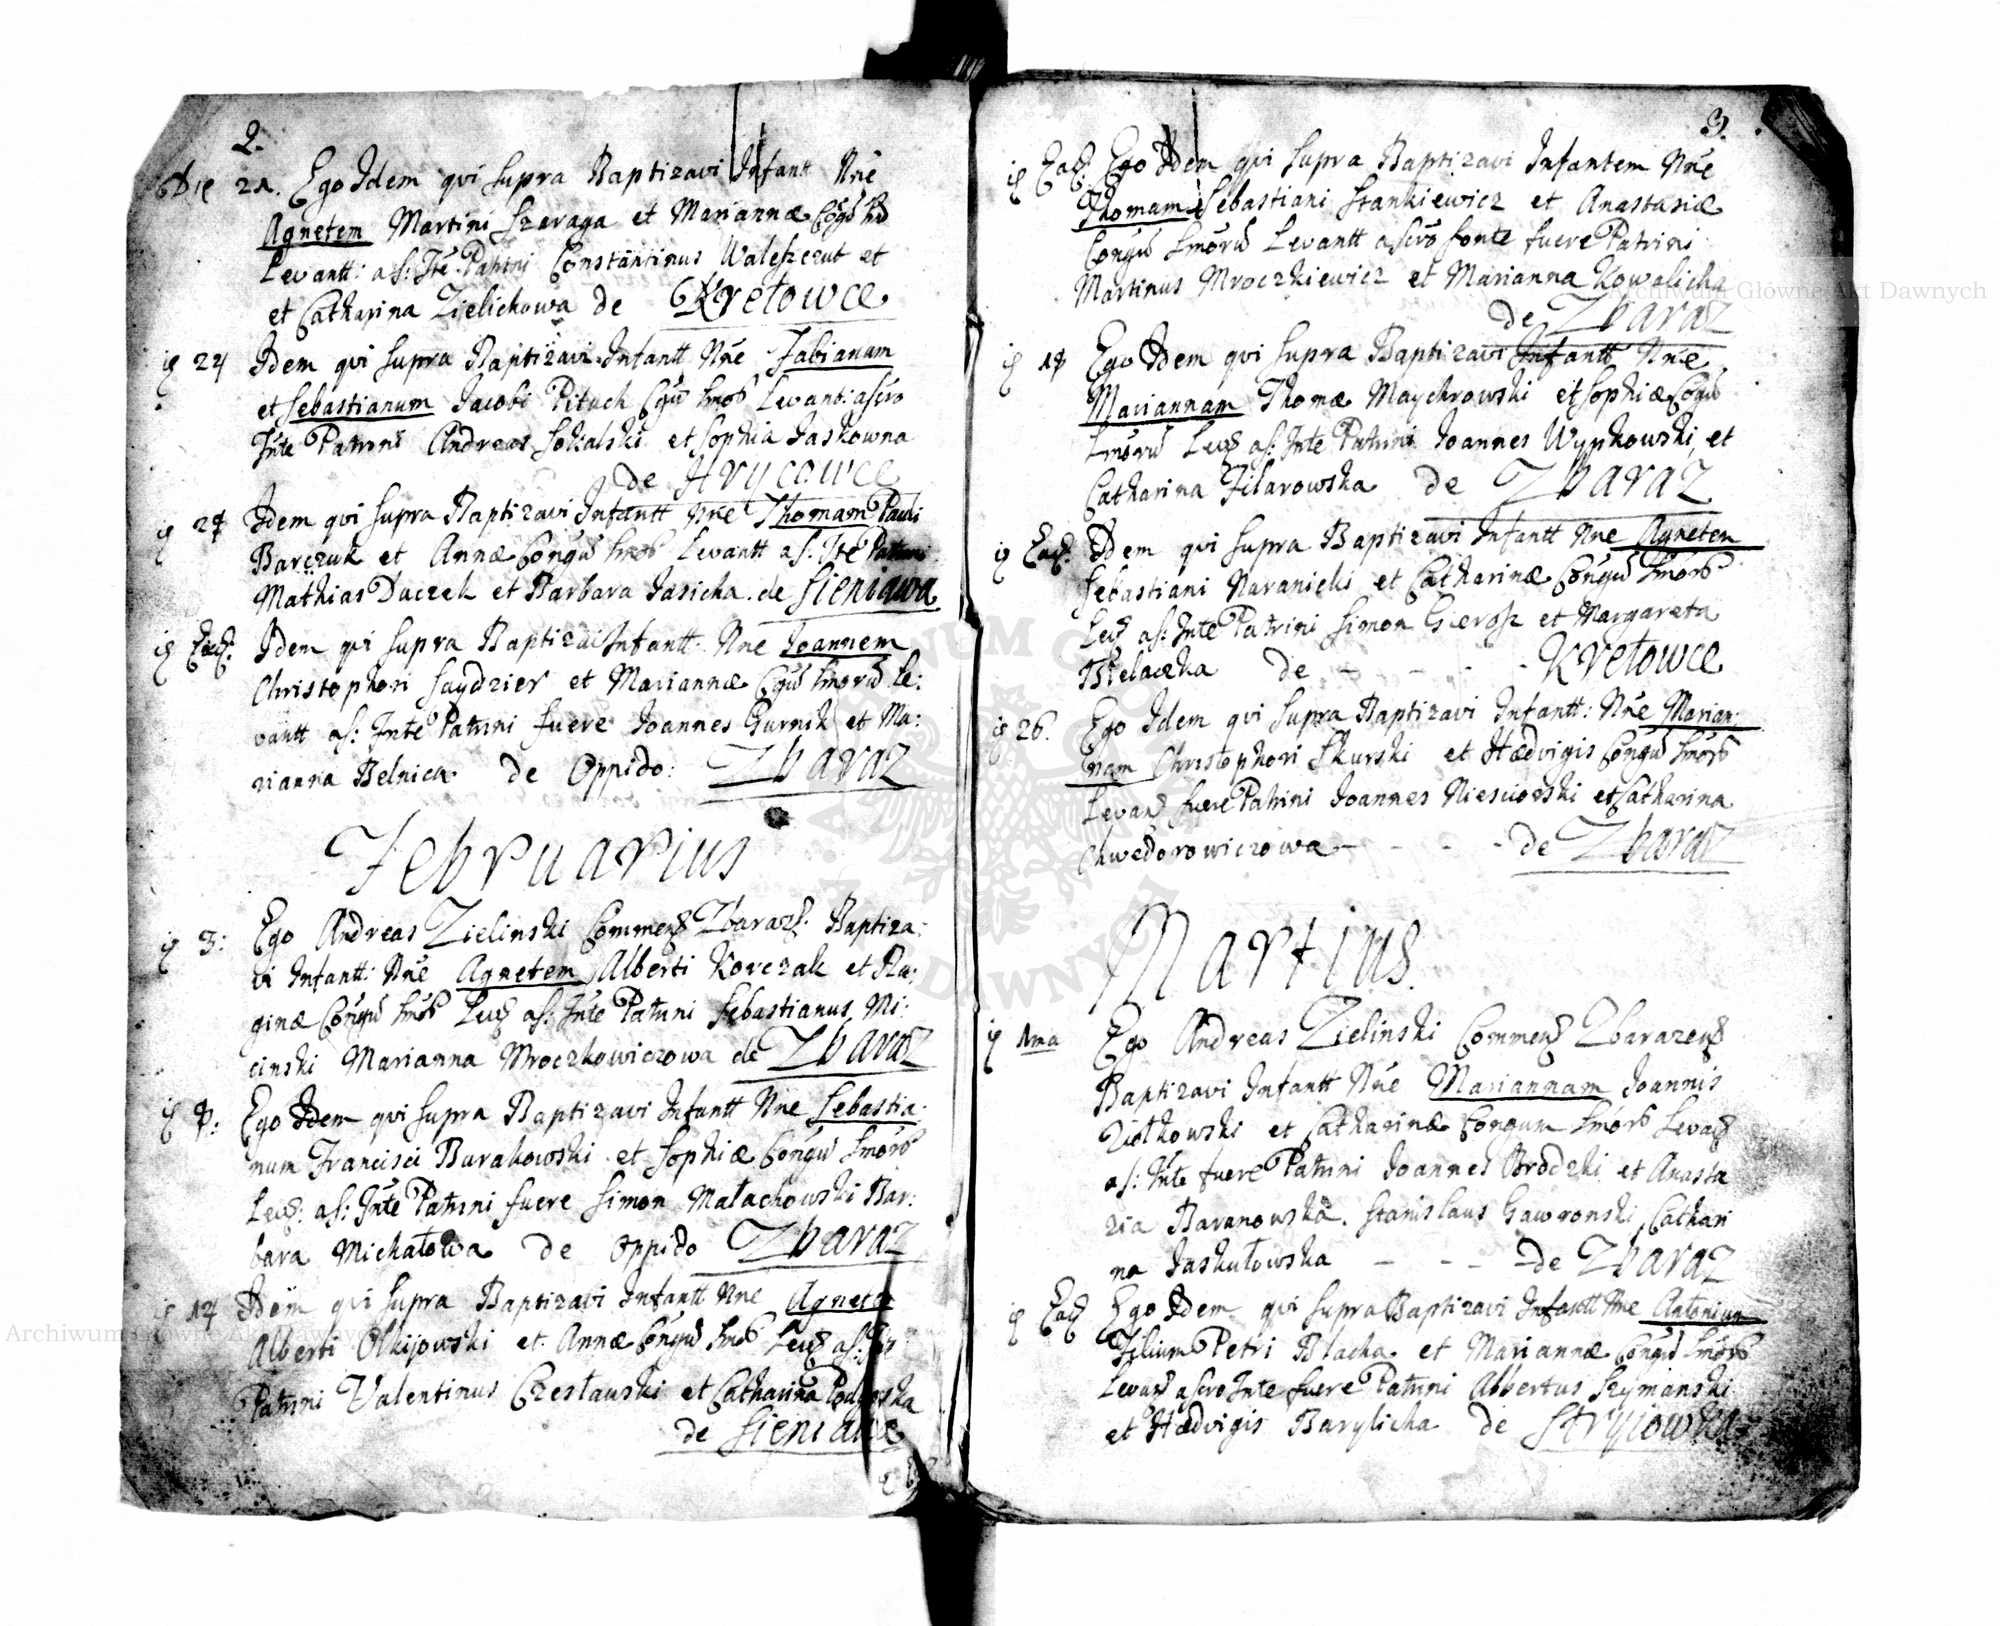 2.
Die 21. Ego Idem qui supra Baptizavi Infant Nne
Agnetem Martini Szaraga et Mariannæ Cõgũ
Levantt: a s: Fte Patrini Constantinus Waleszczut et
et Catharina Zielichowa de Kretowce
24 Idem qui supra Baptizavi Infantt Nne Fabianum
et Sebastianum Jacobi Pituch Cgũ Lmõr Levant: a scro
Fnte Patrini Andreas Sokalski et Sophia Jaskowna
de Hrycowce
Idem qui supra Baptizavi Infantt Nne Thomam Pauli
Barczuk et Annæ Cõngũ Lmõr Levantt a s: Fte Patrini
Mathias Daczek et Barbara Jasicha de Sieniawa
Ead: Idem qui supra Baptizavi Infantt Nne Joannem
Christophori Saydzier et Mariannæ Cgũ Lmorũ Le:
vantt as: Fnte Patrini fuere Joannes Gurnik et Ma:
rianna Belnica de Oppido: Zbaraz
Februarius
3: Ego Andreas Zielinski Commen Zbaraz: Baptiza:
vi Infantt: Nne Agnetem Alberti Korczak et Ra:
ginæ Cõngũ Lmõr Lev as: Fnte Patrini Sebastianus Mi:
cinski Marianna Mroczkowiczowa de Zbaraz
Ego Idem qui supra Baptizavi Infantt Nne Sebastia:
num Francisci Barakowski et Sophiæ Cõngũ Lmõr
Lev: as: Fnte Patrini fuere Simon Małachowski Bar:
bara Michałowa de Oppido Zbaraz
14 Idem qui supra Baptizavi Infantt Nne Agnete
Alberti Olkijowski et Annæ Cõngũ Lmõr Lev as:
Patrini Valentinus Czesławski et Catharina
de Sieniawe
3.
Ead: Ego Idem qui supra Baptizavi Infantem Nne
Thomam Sebastiani Stankiewicz et Anastasiæ
Cõngũ Lmõrũ Levantt a scro fonte fuere Patrini
Martinus Mroczkiewicz et Marianna Kowalicha
de Zbaraz
Ego Idem qui supra Baptizavi Infantt Nne
Mariannam Thomæ Maychrowski et Sophiæ Cõgũ
Lmõrũ Lev as: Fnte Patrini Joannes Wypkowski et
Catharina Filarowska de Zbaraz
Ead: Idem qui supra Baptizavi Infantt Nne Agnetem
Sebastiani Naranicki et Catharinæ Cõngũ Lmõr
Lev as: Fnte Patrini Simon Gierosz et Margareta
Bielaczka de - - - - Kretowce
26. Ego Idem qui supra Baptizavi Infantt: Nne Marian:
nam Christophori Skurski et Hædvigis Cõngũ Lmõr
Levan fuere Patrini Joannes Niesciorski et Catharina
Chwedorowiczowa - - - - de Zbaraz
Martius.
1ma Ego Andreas Zielinski Commen Zbarazen
Baptizavi Infantt Nne Mariannam Joannis
Ziołkowski et Catharinæ Congum Lmõr Levan
as: Fnte fuere Patrini Joannes Brodzki et Anasta
zia Baranowska. Stanislaus Gawronski Cathari
na Jaskułowska - - - de Zbaraz
Ead Ego Idem qui supra Baptizavi Infantt Nne Antonium
Filium Petri Blacha et Mariannæ Cõngũ Lmõr
Levan a scro Fnte fuere Patrini Albertus Szymanski
et Hædvigis Barylicha de Stryiowka
Archiwum Główne Akt Dawnych
Archiwum Główne Akt Dawnych